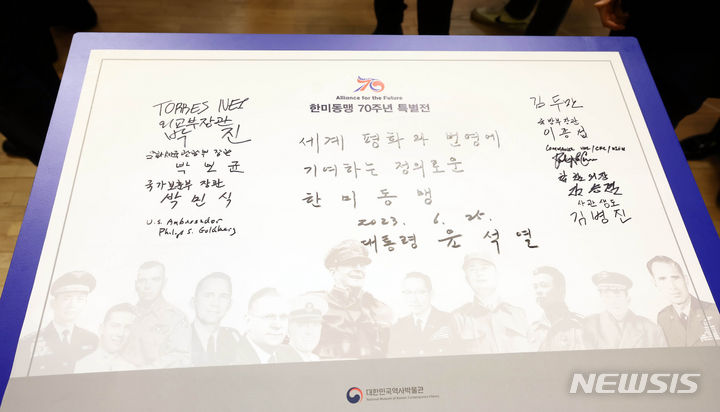 70
Alliance for the Future
한미동맹 70주년 특별전
세계 평화와 번영에
기여하는 정의로운
한미동맹
2023. 6. 25.
대통령 윤석열
TORRES INES
외교부장관
박 진
문화체육관광부 장관
박보균
국가보훈부 장관
박민식
U.S. Ambassador
Philip S. Goldberg
김두만
국방부장관
이종섭
합참의장
김승겸
사관생도
김병진
대한민국역사박물관
National Museum of Korean Contemporary History
NEWSIS